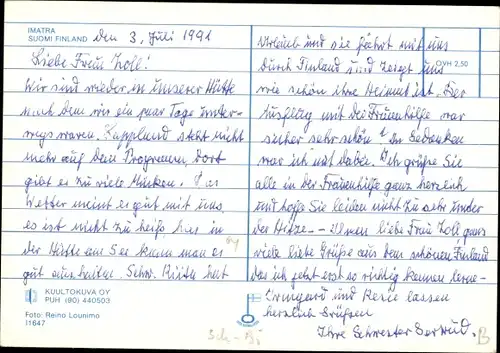 IMATRA
SUOMI FINLAND
den 3. Juli 1991
Liebe Frau Zoll!
Wir sind wieder in unserer Hütte
nach dem wir ein paar Tage unter-
wegs waren. Lappland steht nicht
mehr auf dem Programm, dort
gibt es zu viele Mücken. Das
Wetter meint es gut mit uns,
es ist nicht zu heiß, hier in
der Hütte am See kann man es
gut aushalten. Schw. Ruth hat
KUULTOKUVA OY
PUH (90) 440503
Foto: Reino Lounimo
I1647
Urlaub und sie fährt mit uns
durch Finland und zeigt uns
OVH 2,50
wie schön ihre Heimat ist. Der
Ausflug mit der Frauenhilfe war
sicher sehr schön! In Gedanken
war ich mit dabei. Ich grüße Sie
alle in der Frauenhilfe ganz herzlich
und hoffe Sie leiden nicht zu sehr unter
der Hitze.- Nun liebe Frau Zoll ganz
viele liebe Grüße aus dem schönen Finland
das ich jetzt erst so richtig kennen lerne.
Irmgard und lassen
herzlich Grüßen
Ihre Schwester Gertrud.